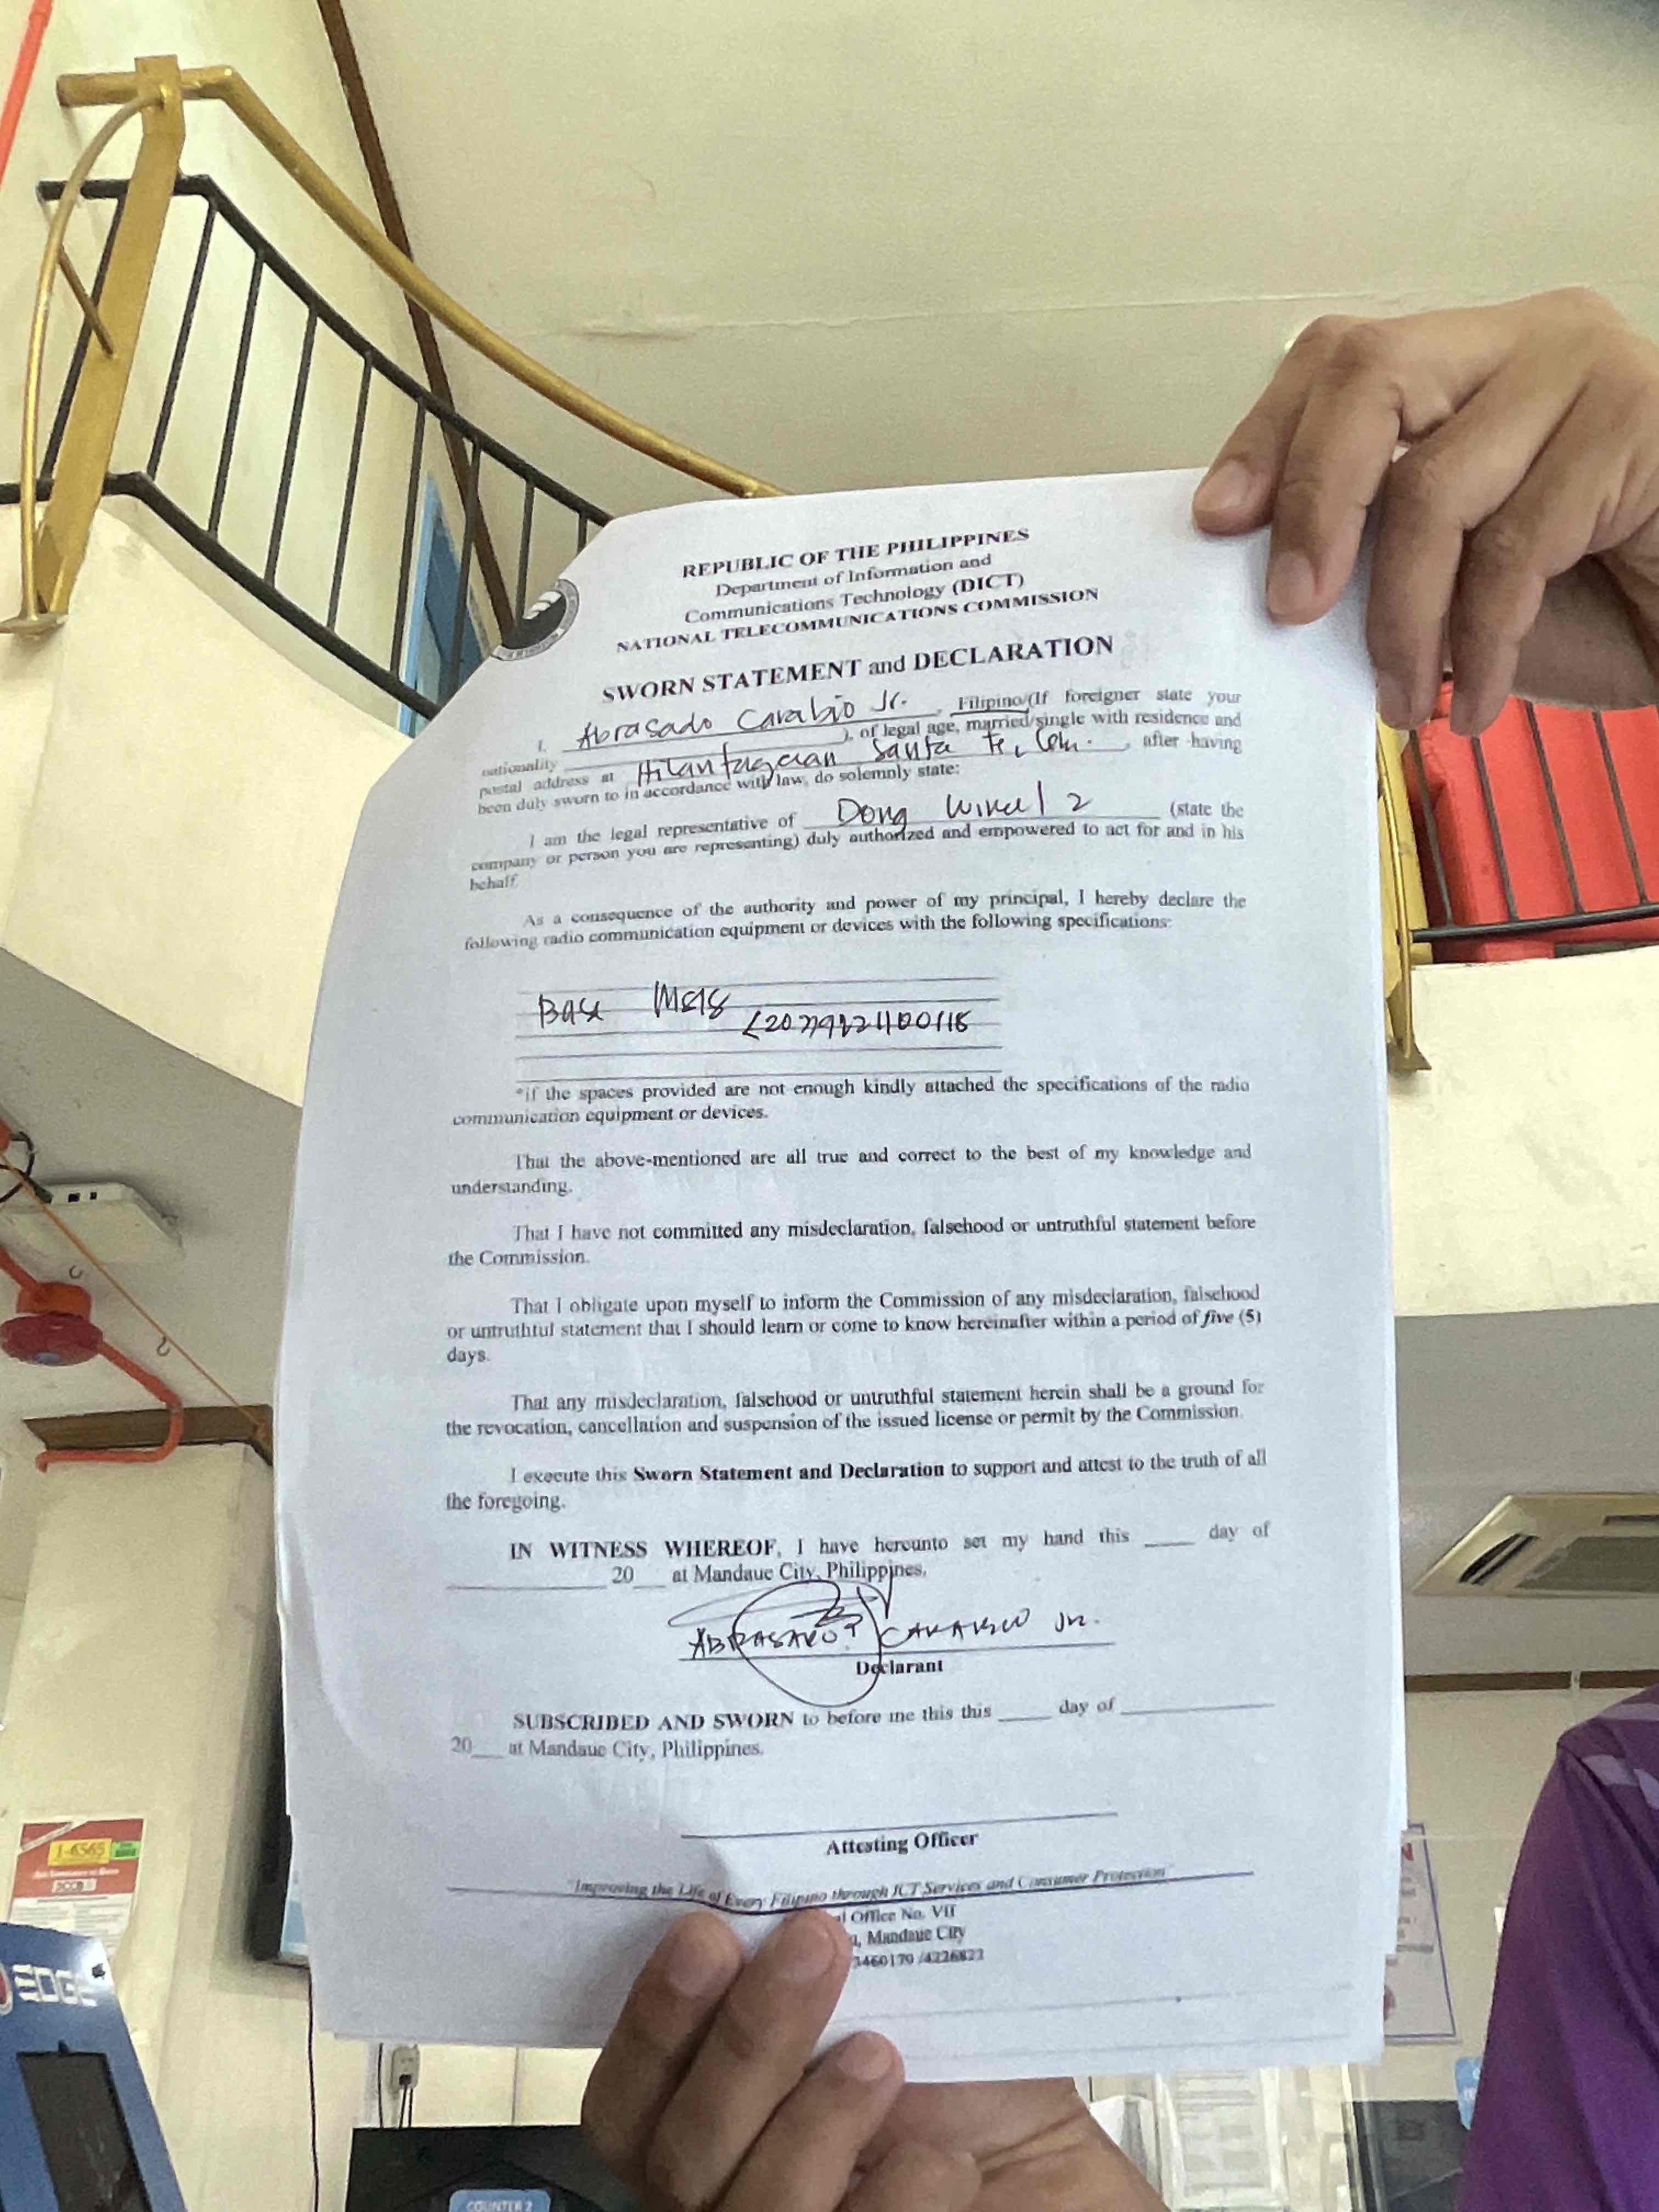 REPUBLIC OF THE PHILIPPINES
Department of Information and
Communications Technology (DICT)
NATIONAL TELECOMMUNICATIONS COMMISSION
SWORN STATEMENT and DECLARATION
I, Abrasado Carabio Jr. , Filipino/(If foreigner state your
nationality ), of legal age, married/single with residence and
postal address at Hilantagaan Santa Fe, , after having
been duly sworn to in accordance with law, do solemnly state:
I am the legal representative of Dong 2 (state the
company or person you are representing) duly authorized and empowered to act for and in his
behalf.
As a consequence of the authority and power of my principal, I hereby declare the
following radio communication equipment or devices with the following specifications:
Base
*if the spaces provided are not enough kindly attached the specifications of the radio
communication equipment or devices.
That the above-mentioned are all true and correct to the best of my knowledge and
understanding.
That I have not committed any misdeclaration, falsehood or untruthful statement before
the Commission.
That I obligate upon myself to inform the Commission of any misdeclaration, falsehood
or untruthful statement that I should learn or come to know hereinafter within a period of five (5)
days.
That any misdeclaration, falsehood or untruthful statement herein shall be a ground for
the revocation, cancellation and suspension of the issued license or permit by the Commission.
I execute this Sworn Statement and Declaration to support and attest to the truth of all
the foregoing.
IN WITNESS WHEREOF, I have hereunto set my hand this ____ day of
____ 20__ at Mandaue City, Philippines.
ABRASADO CARABIO JR.
Declarant
SUBSCRIBED AND SWORN to before me this this ____ day of ____
20__ at Mandaue City, Philippines.
Attesting Officer
"Improving the Life of Every Filipino through ICT Services and Consumer Protection"
Office No. VII
, Mandaue City
3460170 /4226823
1-6565
EDGE
COUNTER 2